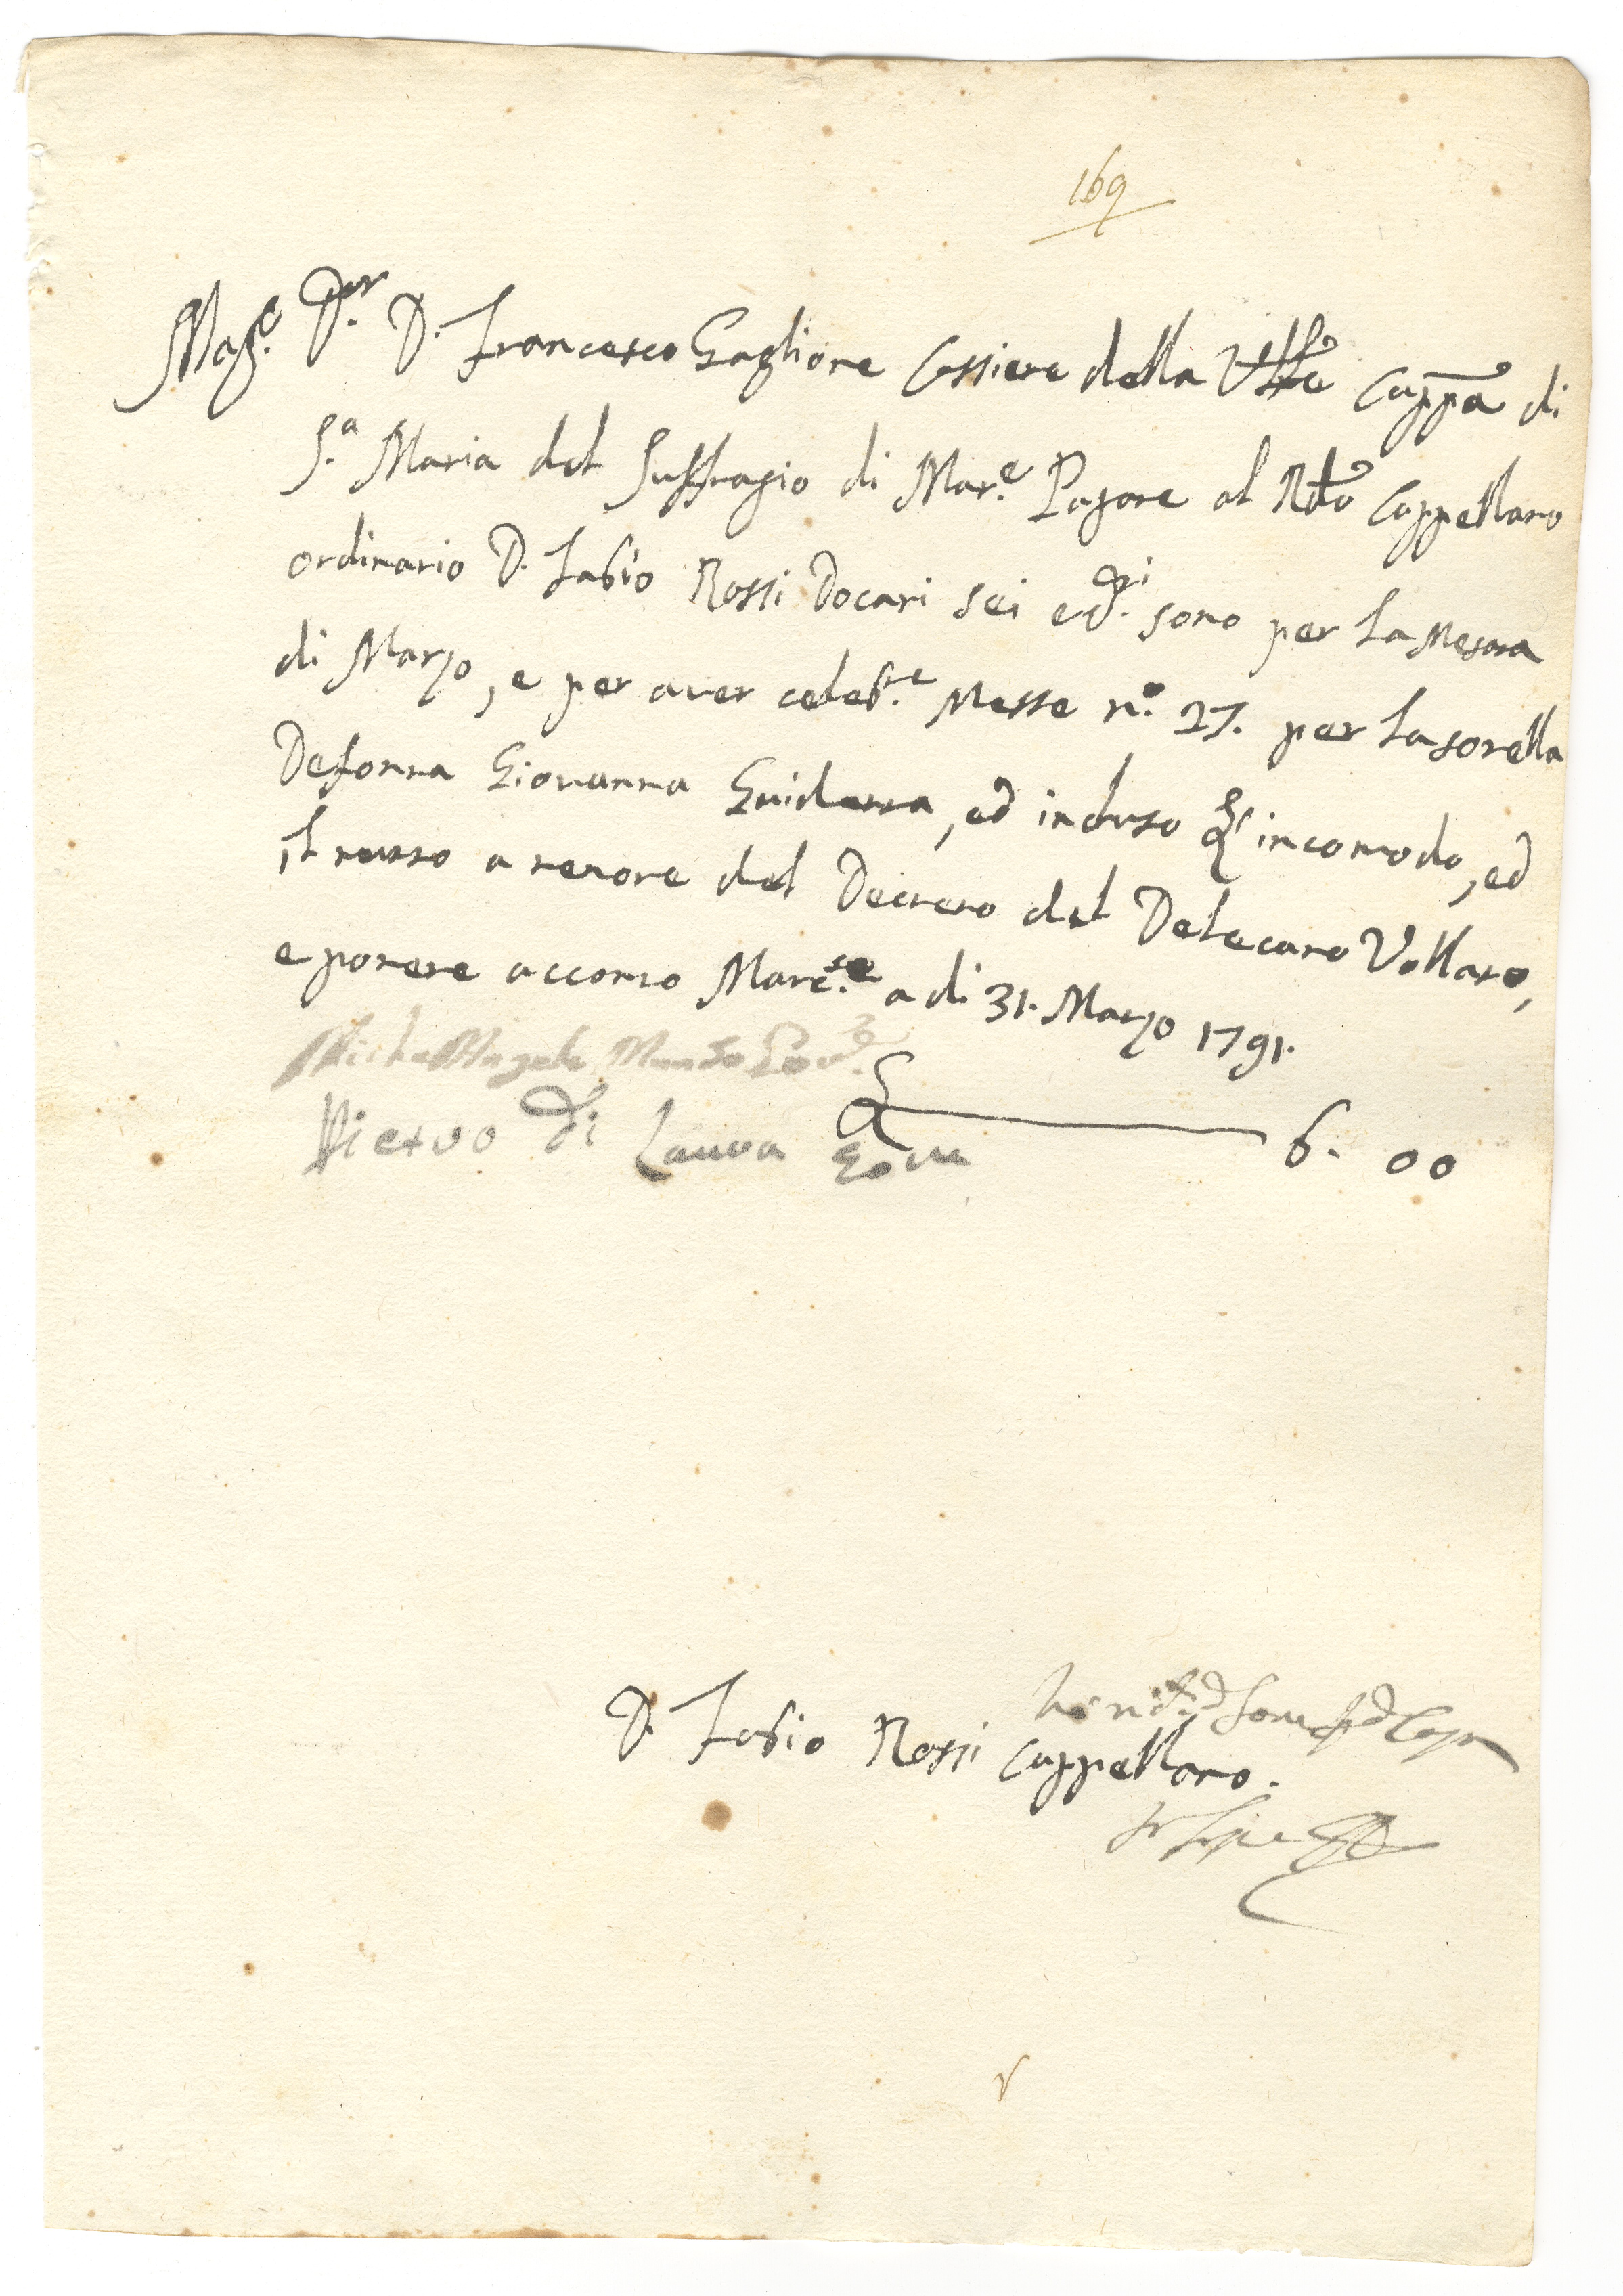 169
Mag.co D.or D. Francesco Gaglione Cassiere della Cappa di
S.a Maria del Suffragio di Mar.e Pagate al Rdo Cappellano
ordinario D. Fabio Rossi Docati sei e d.i sono per la Mesata
di Marzo, e per aver celeb.te Messe n.o 27. per la sorella
Defonta Giovanna Guidetta, ed incluso incomodo, ed
il tutto a tenore del Decreto del Delecato Vollaro,
e ponete acconto Marc.se a di 31. Marzo 1791.
Michel'Angelo Gov.e
Pietro Di Lauva Gove
6. 00
D. Fabio Rossi Cappellano.